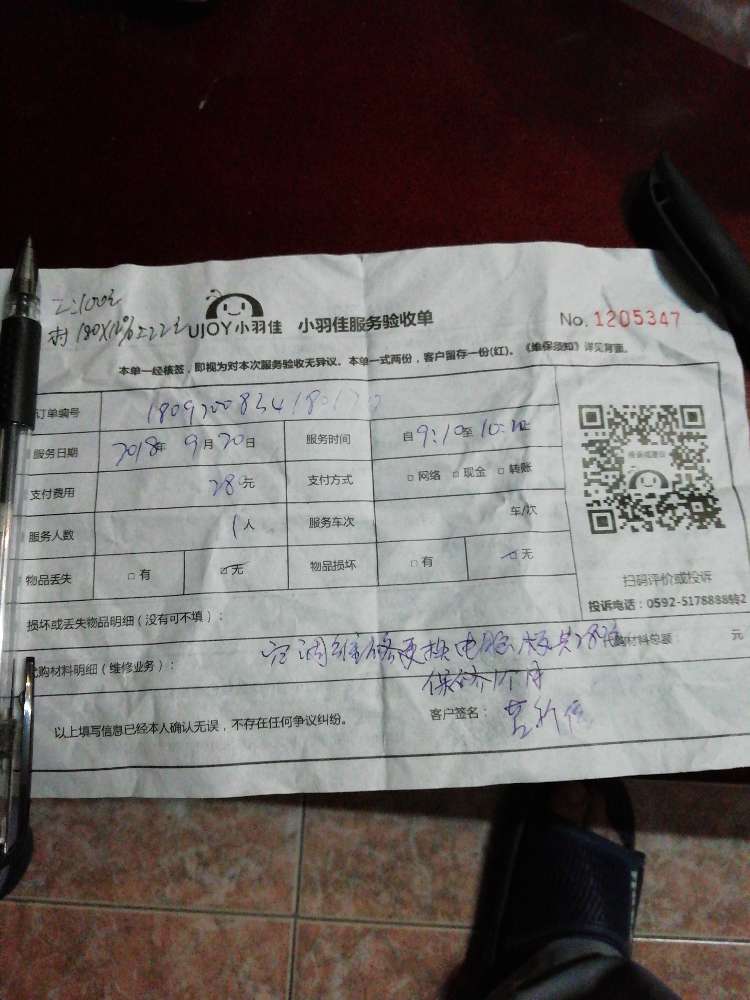 工:100元
材180X12%=22元
UJOY小羽佳 小羽佳服务验收单
No. 1205347
本单一经核签，即视为对本次服务验收无异议。本单一式两份，客户留存一份(红)。《维保须知》详见背面。
订单编号
服务日期 2018年 9月20日 服务时间 自9:10至10:
支付费用 280元 支付方式 □网络 □现金 □转账
服务人数 1人 服务车次 车/次
物品丢失 □有 ☑无 物品损坏 □有 ☑无
扫码评价或投诉
投诉电话：0592-5178888转2
损坏或丢失物品明细（没有可不填）：
代购材料明细（维修业务）： 空调维修更换电脑版共280元 代购材料总额 元
保修
以上填写信息已经本人确认无误，不存在任何争议纠纷。 客户签名：